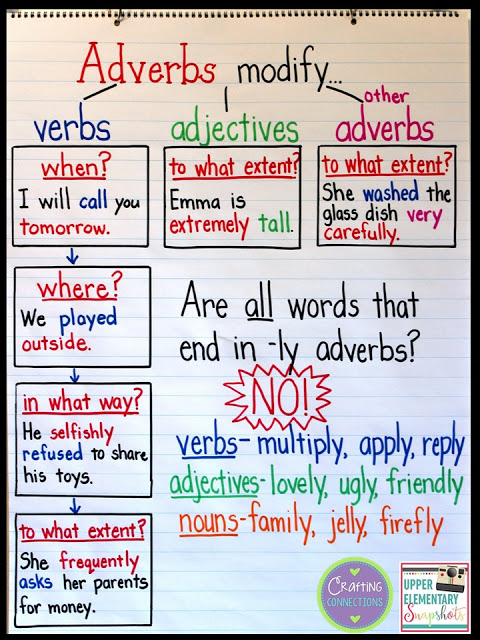 Adverbs modify...
verbs
adjectives
other
adverbs
when?
I will call you
tomorrow.
to what extent?
Emma is
extremely tall.
to what extent?
She washed the
glass dish very
carefully.
where?
We played
outside.
in what way?
He selfishly
refused to share
his toys.
to what extent?
She frequently
asks her parents
for money.
Are all words that
end in -ly adverbs?
NO!
verbs- multiply, apply, reply
adjectives-lovely, ugly, friendly
nouns-family, jelly, firefly
Crafting
CONNECTIONS
UPPER
ELEMENTARY
Snapshots